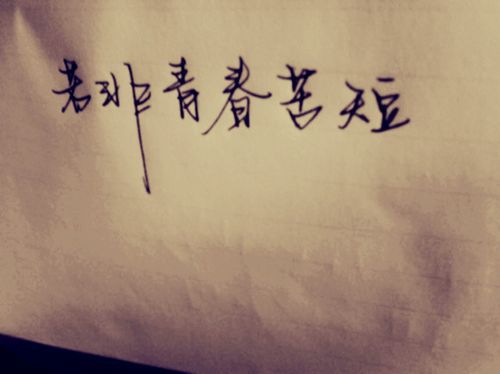 若非青春苦短